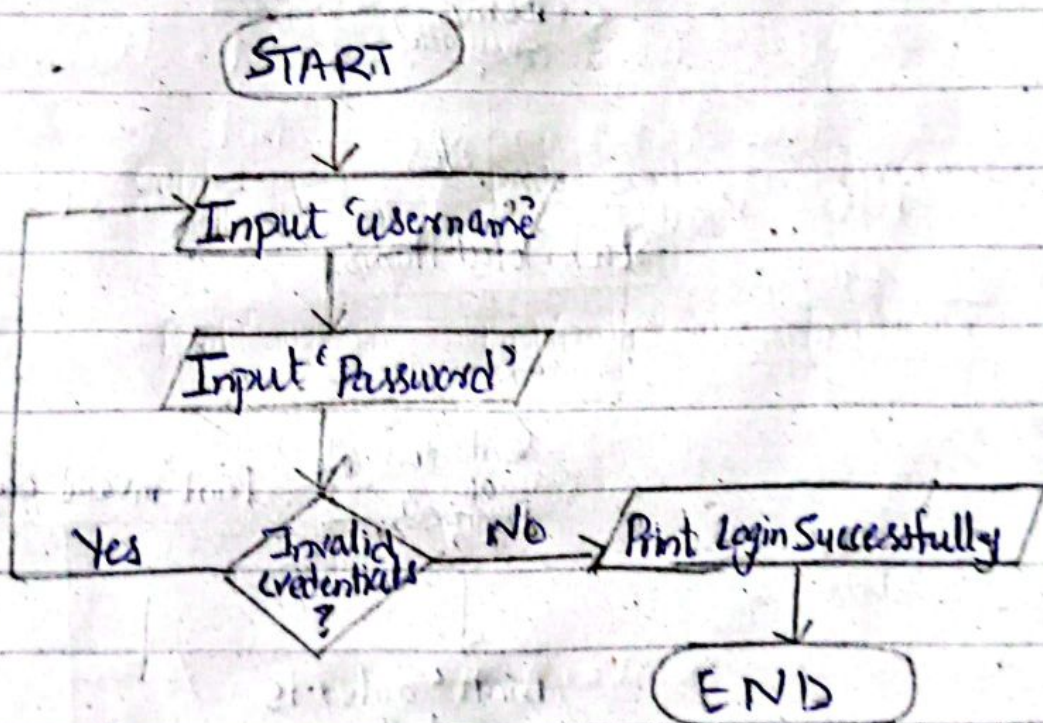 START
Input ‘username’
Input ‘Password’
Invalid
credentials
?
Yes
No
Print Login Successfully
END